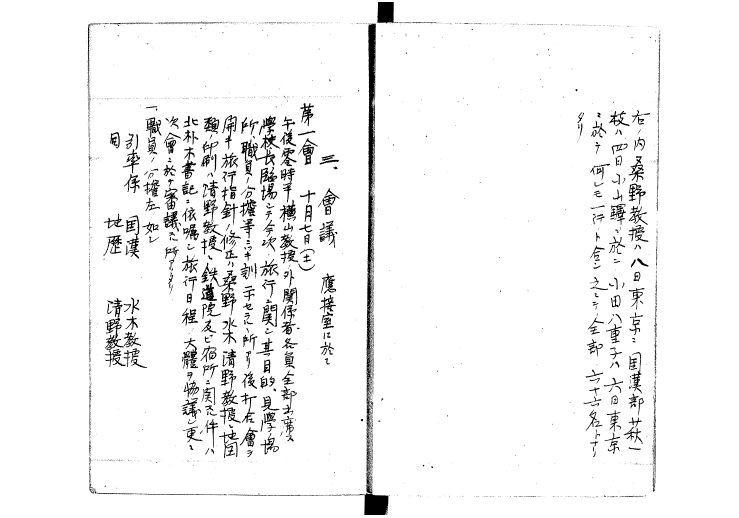 右ノ内桑野教授ハ八日東京ニ国漢部廿萩一
枝ハ四日小山驛ニ於テ小田八重子ハ六日東京
ニ於テ何レモ一行ト合シ之ニテ全部六十六名トナリ
タリ
三、會議 應接室に於て
第一會 十月七日(土)
午後零時半横山教授外関係者各員全部出席
學校長臨場シテ今次ノ旅行ニ関シ其目的、見學ノ場
所、職員ノ分擔等ニツキ訓示セラルヽ所アリ後打合會ヲ
開キ旅行指針ノ修正ハ桑野水木清野教授地図
類ノ印刷ハ清野教授、鉄道院及ビ宿所ニ関スル件ハ
北朴木書記ニ依嘱シ旅行日程ノ大體ヲ協議シ更ニ
次會ニ於テ審議スル所アリタリ
一、職員ノ分擔左ノ如シ
引率係 国漢 水木教授
同 地歴 清野教授